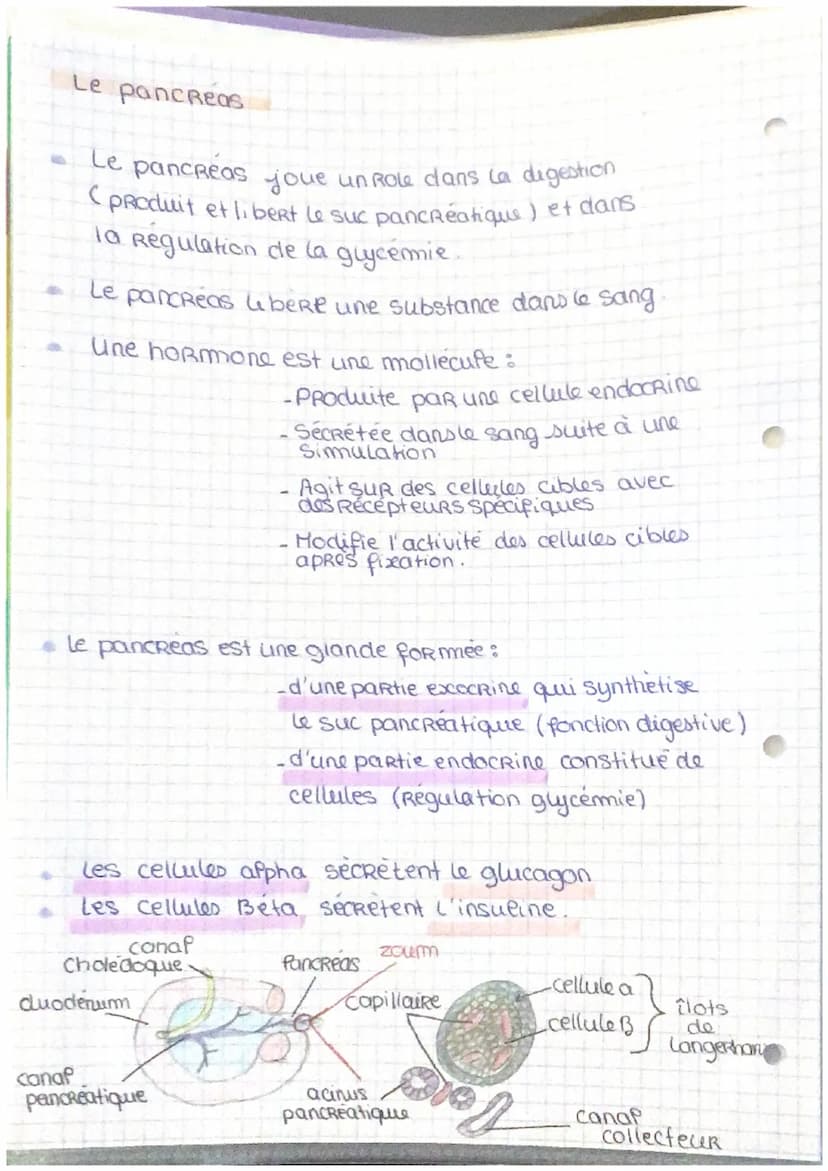 Le pancréas
Le pancréas joue un Role dans la digestion
(produit et libert le suc pancréatique) et dans
la Régulation de la glycémie.
Le pancréas libère une substance dans le sang.
Une hormone est une mollécule :
- Produite par une cellule endocrine
- Sécrétée dans le sang suite à une
Simmulation
- Agit sur des cellules cibles avec
des Récepteurs spécifiques
- Modifie l'activité des cellules cibles
après fixation.
Le pancréas est une glande formée :
- d'une partie exocrine qui synthètise
le suc pancréatique (fonction digestive)
- d'une partie endocrine constitué de
cellules (Régulation glycémie)
Les cellules alpha sècrètent le glucagon
Les cellules Béta sécrètent l'insuline.
canal
Cholédoque
Pancréas
zoum
duodénum
Capillaire
cellule a
cellule B
îlots
de
Langerhans
canal
pancréatique
acinus
pancréatique
canal
collecteur